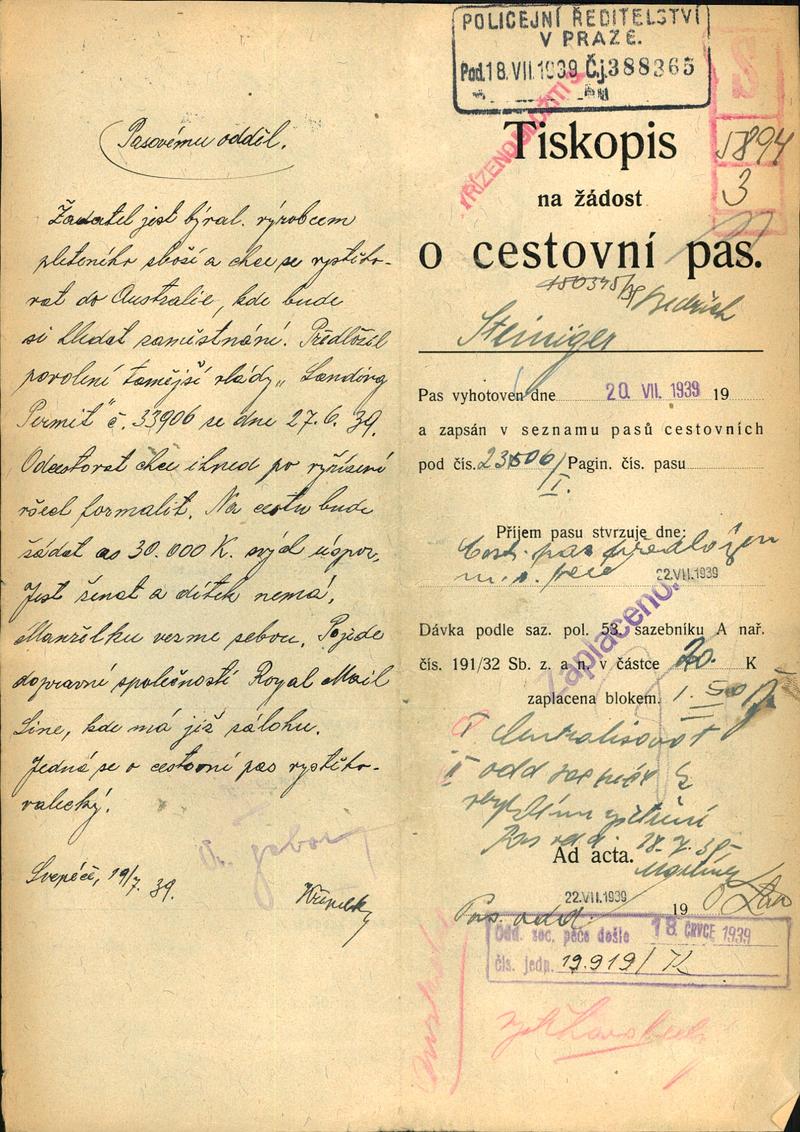 Pasovému odděl.
Žadatel jest býval. výrobcem
pleteného zboží a chce se vystěho-
vat do Australie, kde bude
si hledat zaměstnání. Předložil
povolení tamější vlády „Landing
Permit" č. 33906 ze dne 27.6.39.
Odcestovat chce ihned po vyřízení
všech formalit. Na cestu bude
žádat as 30.000 K. svých úspor.
Jest ženat a dítek nemá.
Manželku vezme sebou. Pojede
dopravní společností Royal Mail
Line, kde má již zálohu.
Jedná se o cestovní pas vystěho-
valecký.
19/7. 39.
POLICEJNÍ ŘEDITELSTVÍ
V PRAZE.
Pod. 18. VII. 1939 Č.j. 388365
5894
3
Tiskopis
na žádost
o cestovní pas.
Bedřich
Steiniger
Pas vyhotoven dne 20. VII. 1939 19
a zapsán v seznamu pasů cestovních
pod čís. 23506/ Pagin. čís. pasu
I.
Příjem pasu stvrzuje dne:
Cest. pas předložen
22.VII.1939
Zaplaceno.
Dávka podle saz. pol. 53. sazebníku A nař.
čís. 191/32 Sb. z. a n. v částce 20. K
zaplacena blokem.
I Centralisovat
II odd soc péče k
Pas. odd. 18. 7. 39
Ad acta.
22.VII.1939
Pas. odd. 19
Odd. soc. péče došlo 18. ČRVCE 1939
čís. jedn. 19.919/